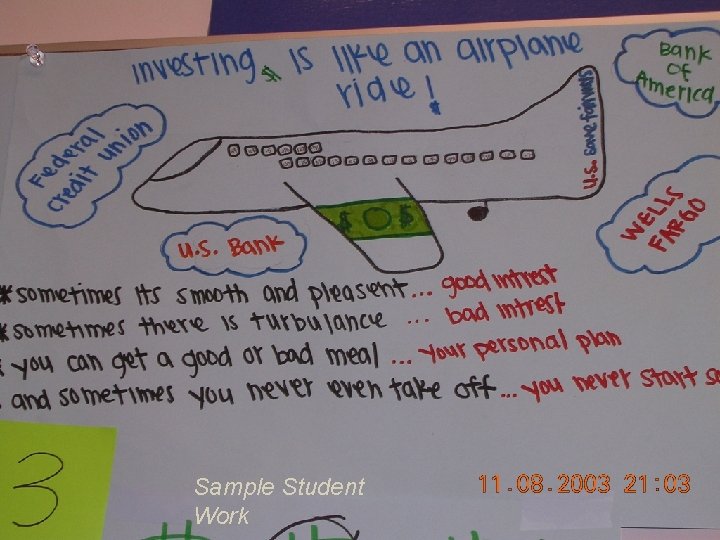 investing $ is like an airplane
ride!
Bank
of
America
Federal
credit union
U.S. Bank
WELLS
FARGO
* sometimes its smooth and pleasent... good intrest
* sometimes there is turbulance ... bad intrest
you can get a good or bad meal ... your personal plan
and sometimes you never even take off... you never start
$ $
3
Sample Student
Work
11.08.2003 21:03